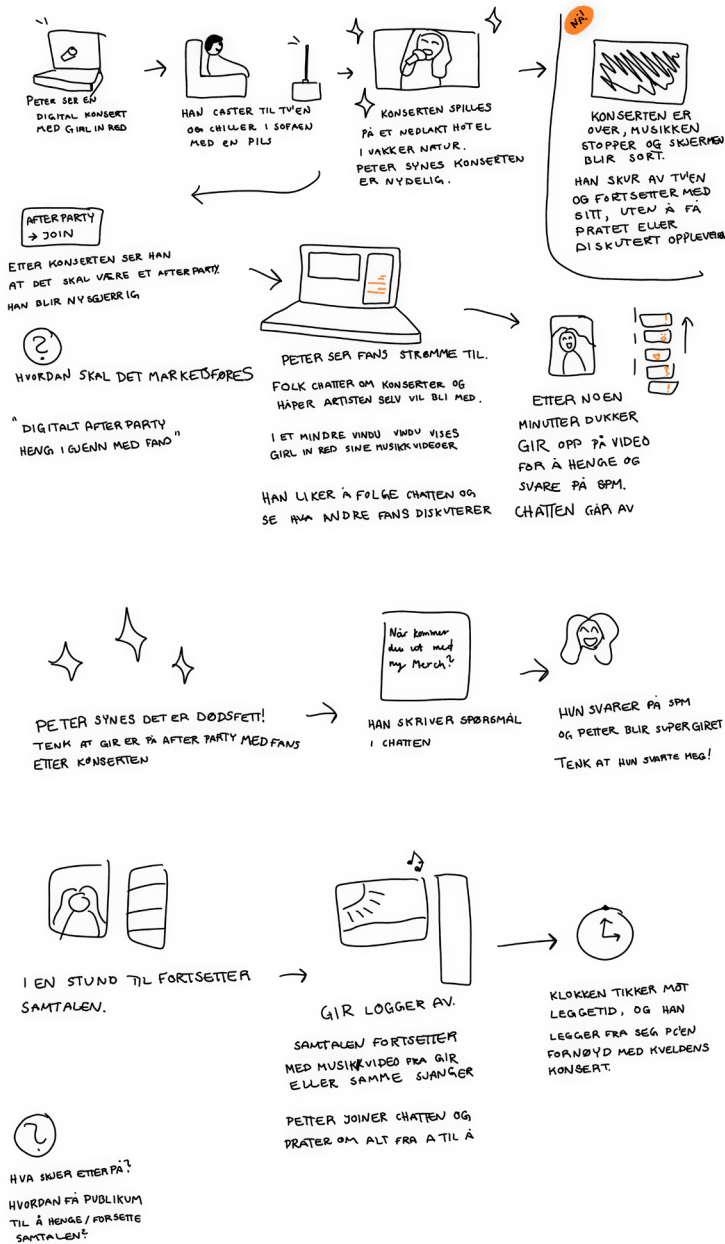 PETER SER EN
DIGITAL KONSERT
MED GIRL IN RED
HAN CASTER TIL TV'EN
OG CHILLER I SOFAEN
MED EN PILS
KONSERTEN SPILLES
PÅ ET NEDLAKT HOTEL
I VAKKER NATUR.
PETER SYNES KONSERTEN
ER NYDELIG.
NÅ!
KONSERTEN ER
OVER, MUSIKKEN
STOPPER OG SKJERMEN
BLIR SORT.
HAN SKUR AV TV'EN
OG FORTSETTER MED
SITT, UTEN Å FÅ
PRATET ELLER
DISKUTERT OPPLEVELSEN
AFTERPARTY
→ JOIN
ETTER KONSERTEN SER HAN
AT DET SKAL VÆRE ET AFTERPARTY.
HAN BLIR NYSGJERRIG
?
HVORDAN SKAL DET MARKETSFØRES
"DIGITALT AFTERPARTY
HENG IGJENN MED FANS"
PETER SER FANS STRØMME TIL.
FOLK CHATTER OM KONSERTER OG
HÅPER ARTISTEN SELV VIL BLI MED.
I ET MINDRE VINDU VINDU VISES
GIRL IN RED SINE MUSIKKVIDEOER
HAN LIKER Å FØLGE CHATTEN OG
SE HVA ANDRE FANS DISKUTERER
ETTER NOEN
MINUTTER DUKKER
GIR OPP PÅ VIDEO
FOR Å HENGE OG
SVARE PÅ SPM.
CHATTEN GÅR AV
PETER SYNES DET ER DØDSFETT!
TENK AT GIR ER PÅ AFTER PARTY MED FANS
ETTER KONSERTEN
Når kommer
du ut med
ny Merch?
HAN SKRIVER SPØRSMÅL
I CHATTEN
HUN SVARER PÅ SPM
OG PETTER BLIR SUPERGIRET
TENK AT HUN SVARTE MEG!
I EN STUND TIL FORTSETTER
SAMTALEN.
GIR LOGGER AV.
SAMTALEN FORTSETTER
MED MUSIKKVIDEO FRA GIR
ELLER SAMME SJANGER
PETTER JOINER CHATTEN OG
PRATER OM ALT FRA A TIL Å
KLOKKEN TIKKER MOT
LEGGETID, OG HAN
LEGGER FRA SEG PC'EN
FORNØYD MED KVELDENS
KONSERT.
?
HVA SKJER ETTERPÅ?
HVORDAN FÅ PUBLIKUM
TIL Å HENGE/FORSETTE
SAMTALEN?